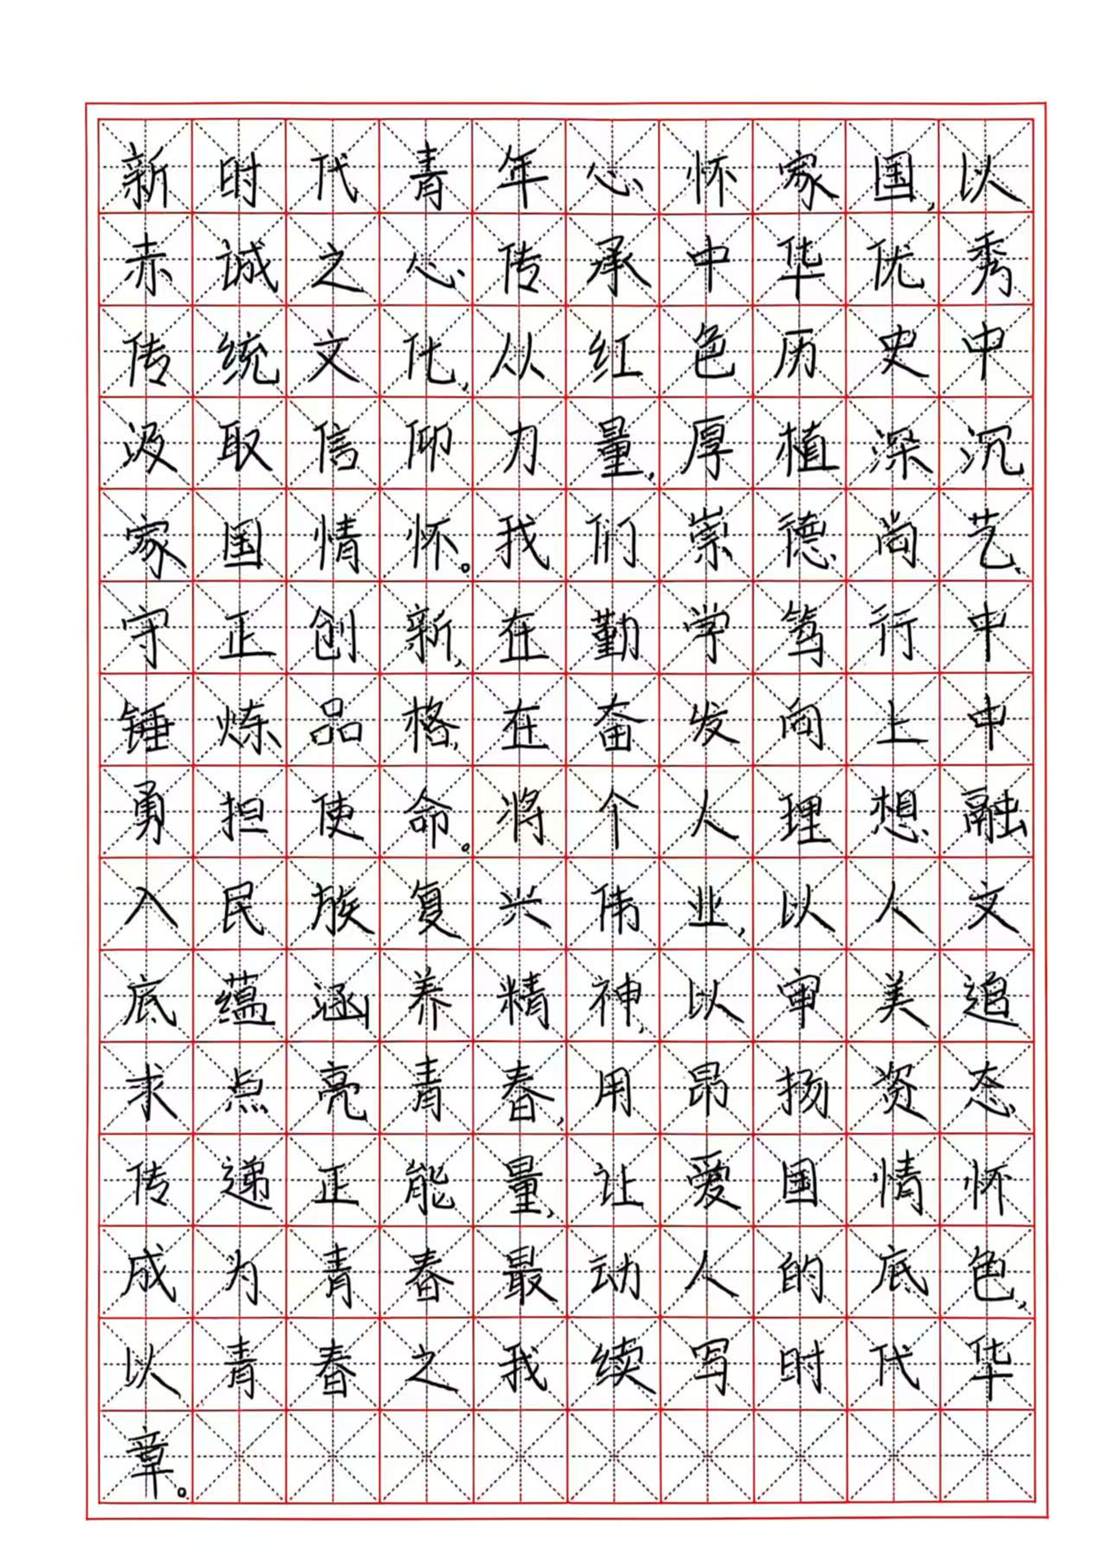 新时代青年心怀家国,以
赤诚之心传承中华优秀
传统文化,从红色历史中
汲取信仰力量,厚植深沉
家国情怀。我们崇德尚艺、
守正创新,在勤学笃行中
锤炼品格,在奋发向上中
勇担使命。将个人理想融
入民族复兴伟业,以人文
底蕴涵养精神,以审美追
求点亮青春,用昂扬资态
传递正能量,让爱国情怀
成为青春最动人的底色,
以青春之我续写时代华
章。